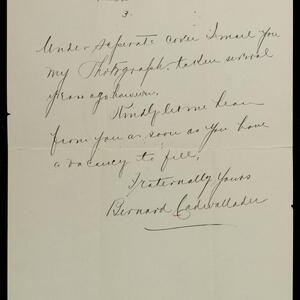 3.
Under separate cover I mail you
my Photograph. taken several
years ago however.
Kindly let me hear
from you as soon as you have
a vacancy to fill,
Fraternally Yours
Bernard Cadwallader